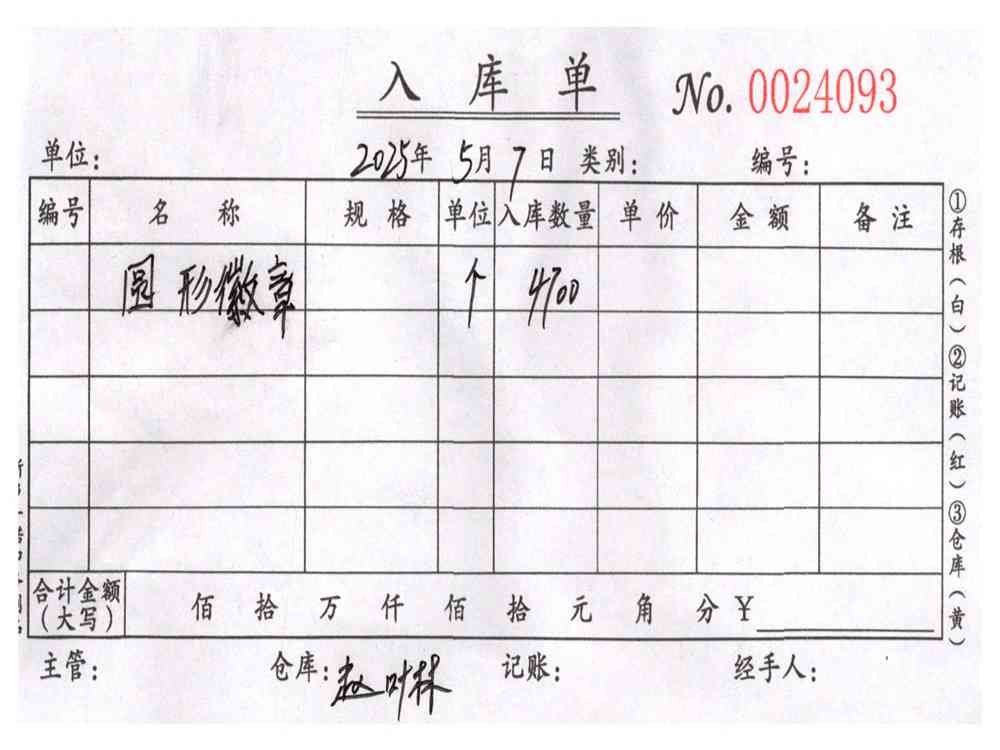 入库单 No. 0024093
单位: 2025年 5月 7日 类别: 编号:
编号 名称 规格 单位 入库数量 单价 金额 备注
圆形徽章 个 4700
合计金额(大写) 佰 拾 万 仟 佰 拾 元 角 分 ¥
主管: 仓库:赵叶林 记账: 经手人:
①存根(白)②记账(红)③仓库(黄)